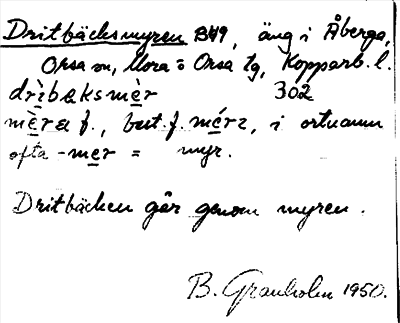 Dritbäcksmyren BH9, äng i Åberga,
Orsa sn, Mora o Orsa tg, Kopparb. l.
drìbæksmèr 302
mèra f., best. f. mérɩ, i ortnamn
ofta -mer = myr.
Dritbäcken går genom myren.
B. Granholm 1950.